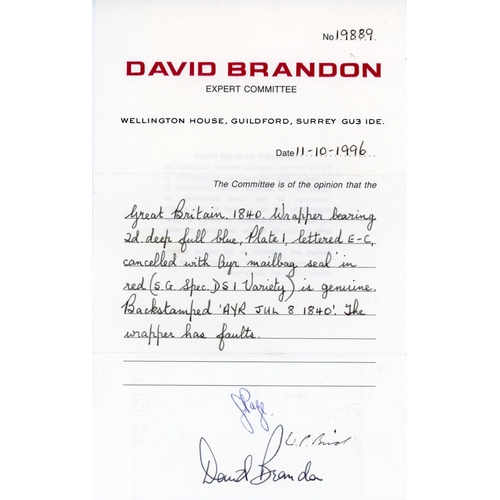 No 19889.
DAVID BRANDON
EXPERT COMMITTEE
WELLINGTON HOUSE, GUILDFORD, SURREY GU3 IDE.
Date 11-10-1996
The Committee is of the opinion that the
Great Britain. 1840. Wrapper bearing
2d. deep full blue, Plate 1, lettered E-C,
cancelled with Ayr 'mailbag seal' in
red (S.G. Spec. DS 1 Variety) is genuine.
Backstamped 'AYR JUL 8 1840'. The
wrapper has faults.
David Brandon